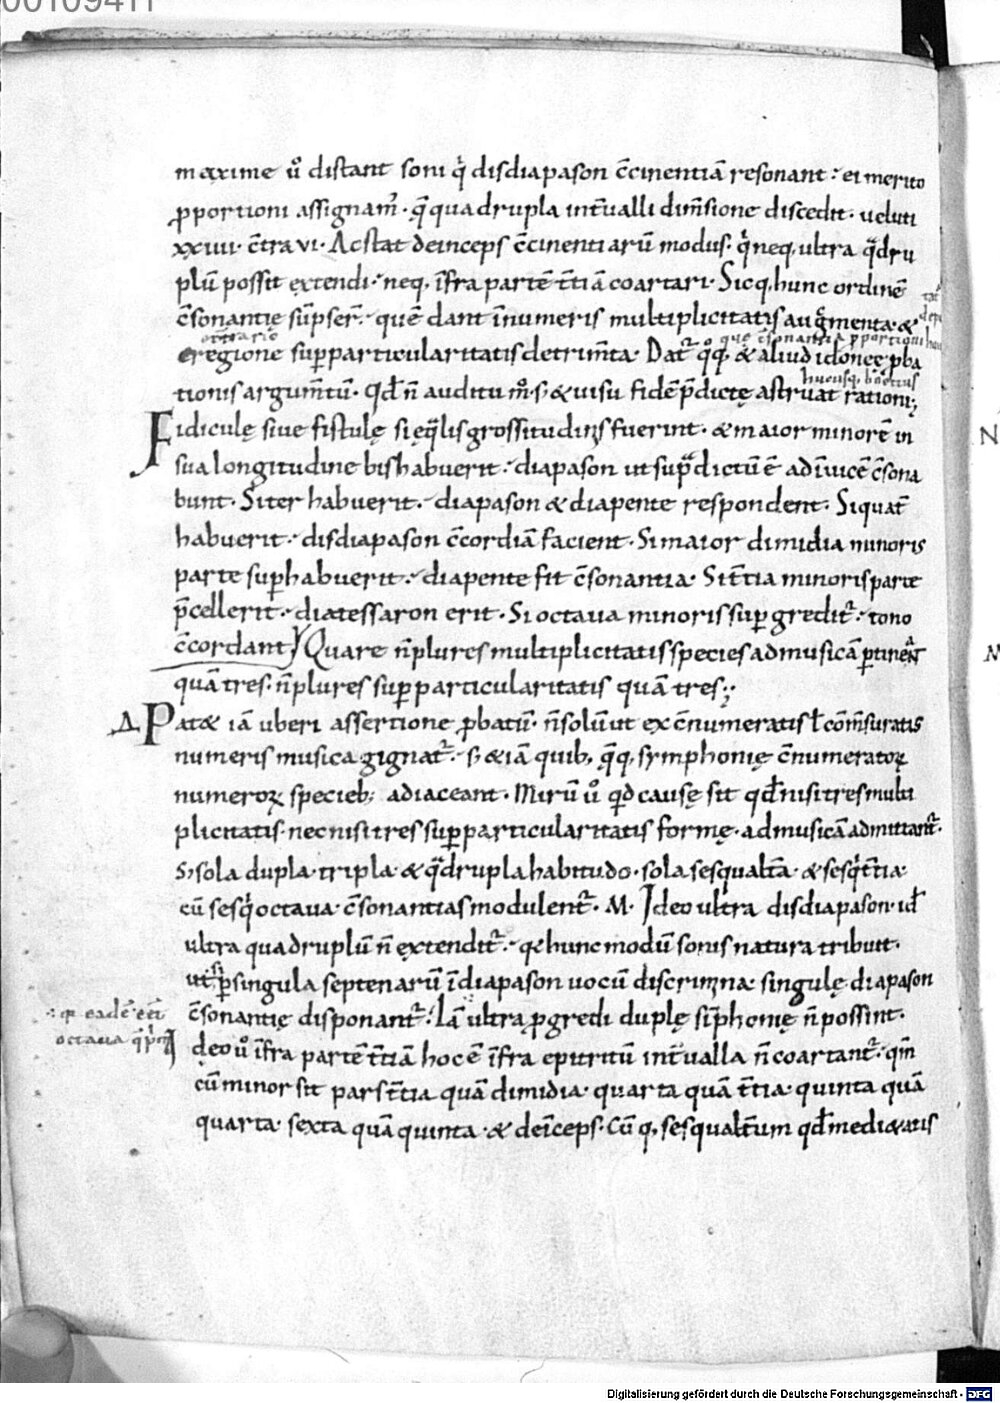 00109411
maxime ů distant soni q̇ disdiapason c̄cinentiā resonant · ei merito
ꝓportioni assignam̄ · q̄ quadrupla int̄ualli dim̄sione discedit · veluti
xxiiii · c̄tra vi · Ac stat deinceps c̄cinentiarū modus · q̇ neq, ultra q̃dru
plū possit extendi · neq, īfra partē t̄tiā coartari · Sicq, hunc ordinē
c̄sonantię sūpser̄ · quē dant ī numeris multiplicitatis augm̄enta · &
e regione suꝑparticularitatis detrim̄ta · Dat̄ q°q, & aliud idoneę ꝓba
tionis argum̄tū · qđ n̄ auditu m̊ · s; & uisu fidē p̄dictę astruat rationi;
Fidiculę siue fistulę si ęq̄lis grossitudinis fuerint · & maior minorē in
sua longitudine bis habuerit · diapason ut sup̃dictū ē ad īuicē c̄sona
bunt · Si ter habuerit · diapason & diapente respondent · Si quat̄
habuerit · disdiapason c̄cordiā facient · Si maior dimidia minoris
parte suꝑhabuerit · diapente fit c̄sonantia · Si t̄tia minoris parte
p̄cellerit · diatessaron erit · Si octaua minoris suꝑgredit̄ · tono
c̄cordant Quare n̄ plures multiplicitatis species ad musicā ꝑtineānt
quā tres · n̄ plures suꝑparticularitatis quā tres;
Δ Pat& iā uberi assertione ꝓbatū · n̄ solū ut ex c̄numeratis ł cōm̄suratis
numeris musica gignat̄ · s; & iā quib, q̄q, symphonię c̄numeratoꝝ
numeroꝝ specieb; adiaceant · Mirū ů qid causę sit qđ nisi tres multi
plicitatis · nec nisi tres suꝑparticularitatis formę · ad musicā admittant̄ ·
S; sola dupla · tripla · & q̃drupla habitudo · sola sesq̇alt̄a · & sesq̇t̄tia ·
cū sesq̇octaua · c̄sonantias modulent̄ · M · Ideo ultra disdiapason · id̄
ultra quadruplū n̄ extendit̄ · qđ hunc modū sonis natura tribuit ·
ut suꝑ singula septenarū ī diapason uocū discrimina singulę diapason
c̄sonantię disponant̄ · Iā ultra ꝓgredi duplę sīphonię n̄ possint ·
· qa eadē &iā
octaua q̇ p̄ma
Ideo ů īfra partē t̄tiā hoc ē īfra epitritū int̄ualla n̄ coartant̄ · qm̄
cū minor sit pars t̄tia quā dimidia · quarta quā t̄tia · quinta quā
quarta · sexta quā quinta · & deīceps · Cū q, sesqualt̄um qđ medi&atis
Digitalisierung gefördert durch die Deutsche Forschungsgemeinschaft · DFG